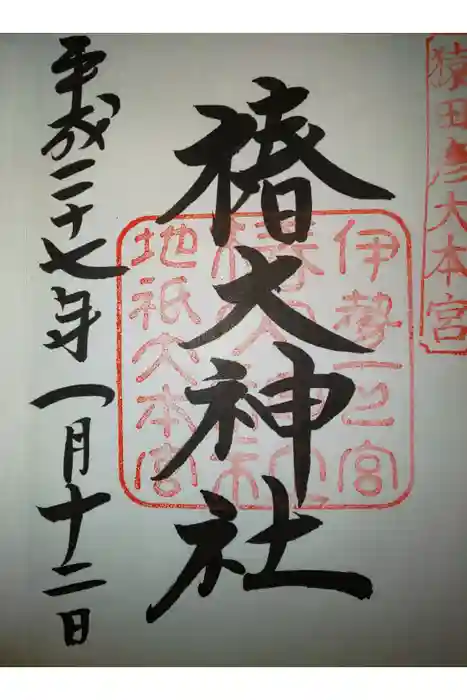 猿田彦大本宮
伊勢一之宮
椿大神社
地祇大本宮
椿大神社
平成二十七年一月十二日